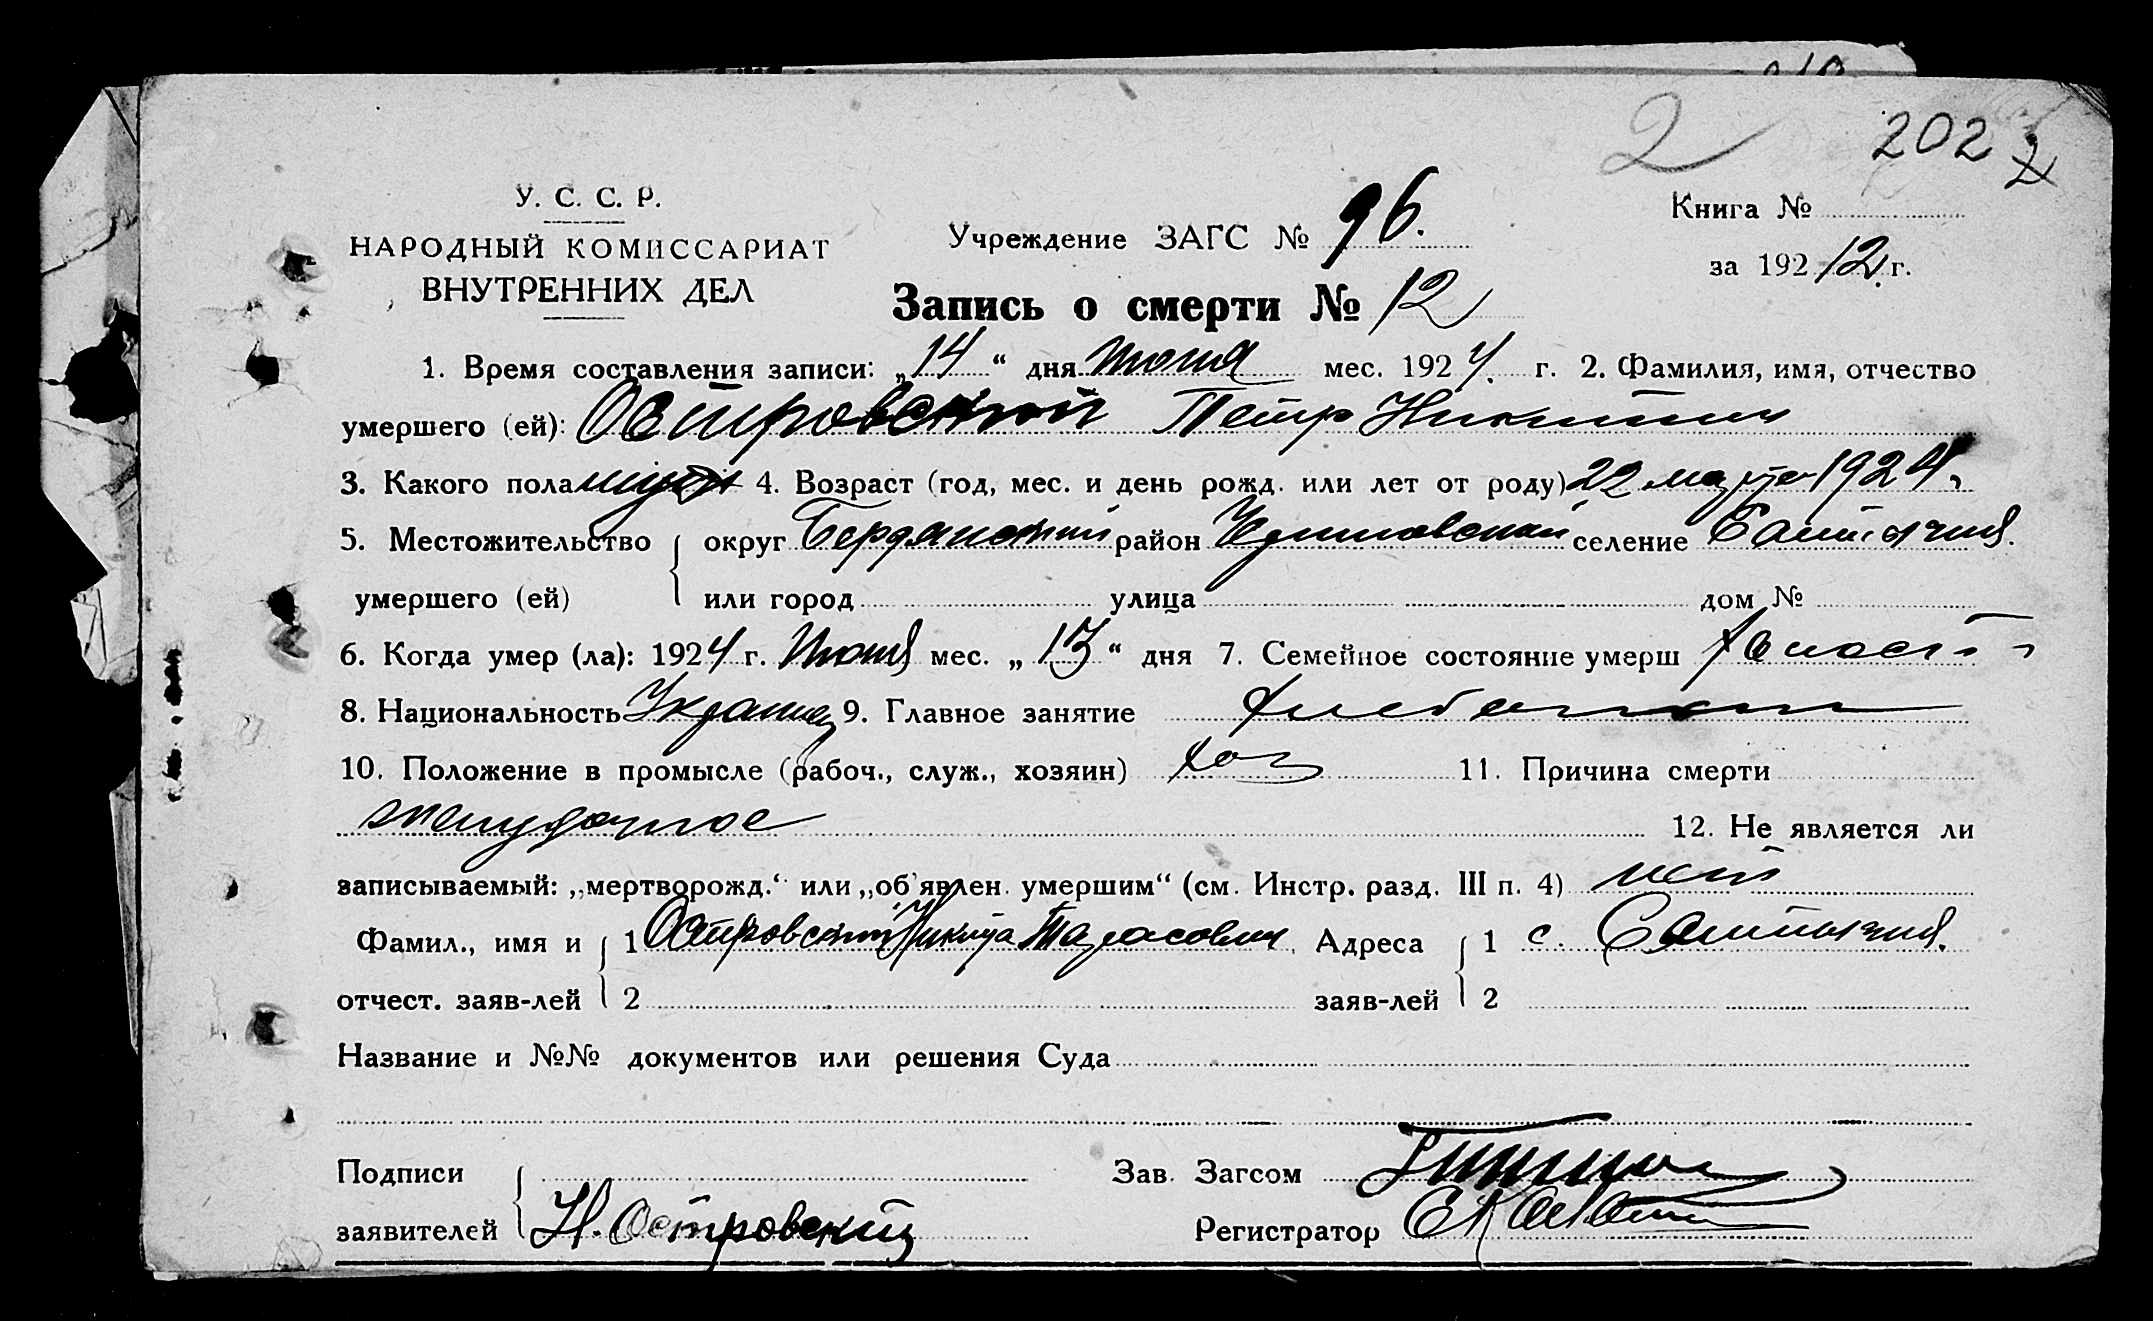 2 202
У. С. С. Р.
НАРОДНЫЙ КОМИССАРИАТ
ВНУТРЕННИХ ДЕЛ
Учреждение ЗАГС № 96.
Книга №
за 192 12 г.
Запись о смерти № 12
1. Время составления записи: „14“ дня июня мес. 1924 г. 2. Фамилия, имя, отчество
умершего (ей): Островский Петр Никитич
3. Какого пола муж 4. Возраст (год, мес. и день рожд. или лет от роду) 22 марта 1924 г.
5. Местожительство округ Бердянский район селение
умершего (ей) или город улица дом №
6. Когда умер (ла): 1924 г. Июня мес. „13“ дня 7. Семейное состояние умерш холост
8. Национальность Украинец 9. Главное занятие
10. Положение в промысле (рабоч., служ., хозяин) хоз 11. Причина смерти
желудочное 12. Не является ли
записываемый: „мертворожд.“ или „об'явлен. умершим“ (см. Инстр. разд. III п. 4) нет
Фамил., имя и 1 Островский Никита Тарасович Адреса 1 с.
отчест. заяв-лей 2 заяв-лей 2
Название и №№ документов или решения Суда
Подписи Зав. Загсом
заявителей Н. Островский Регистратор